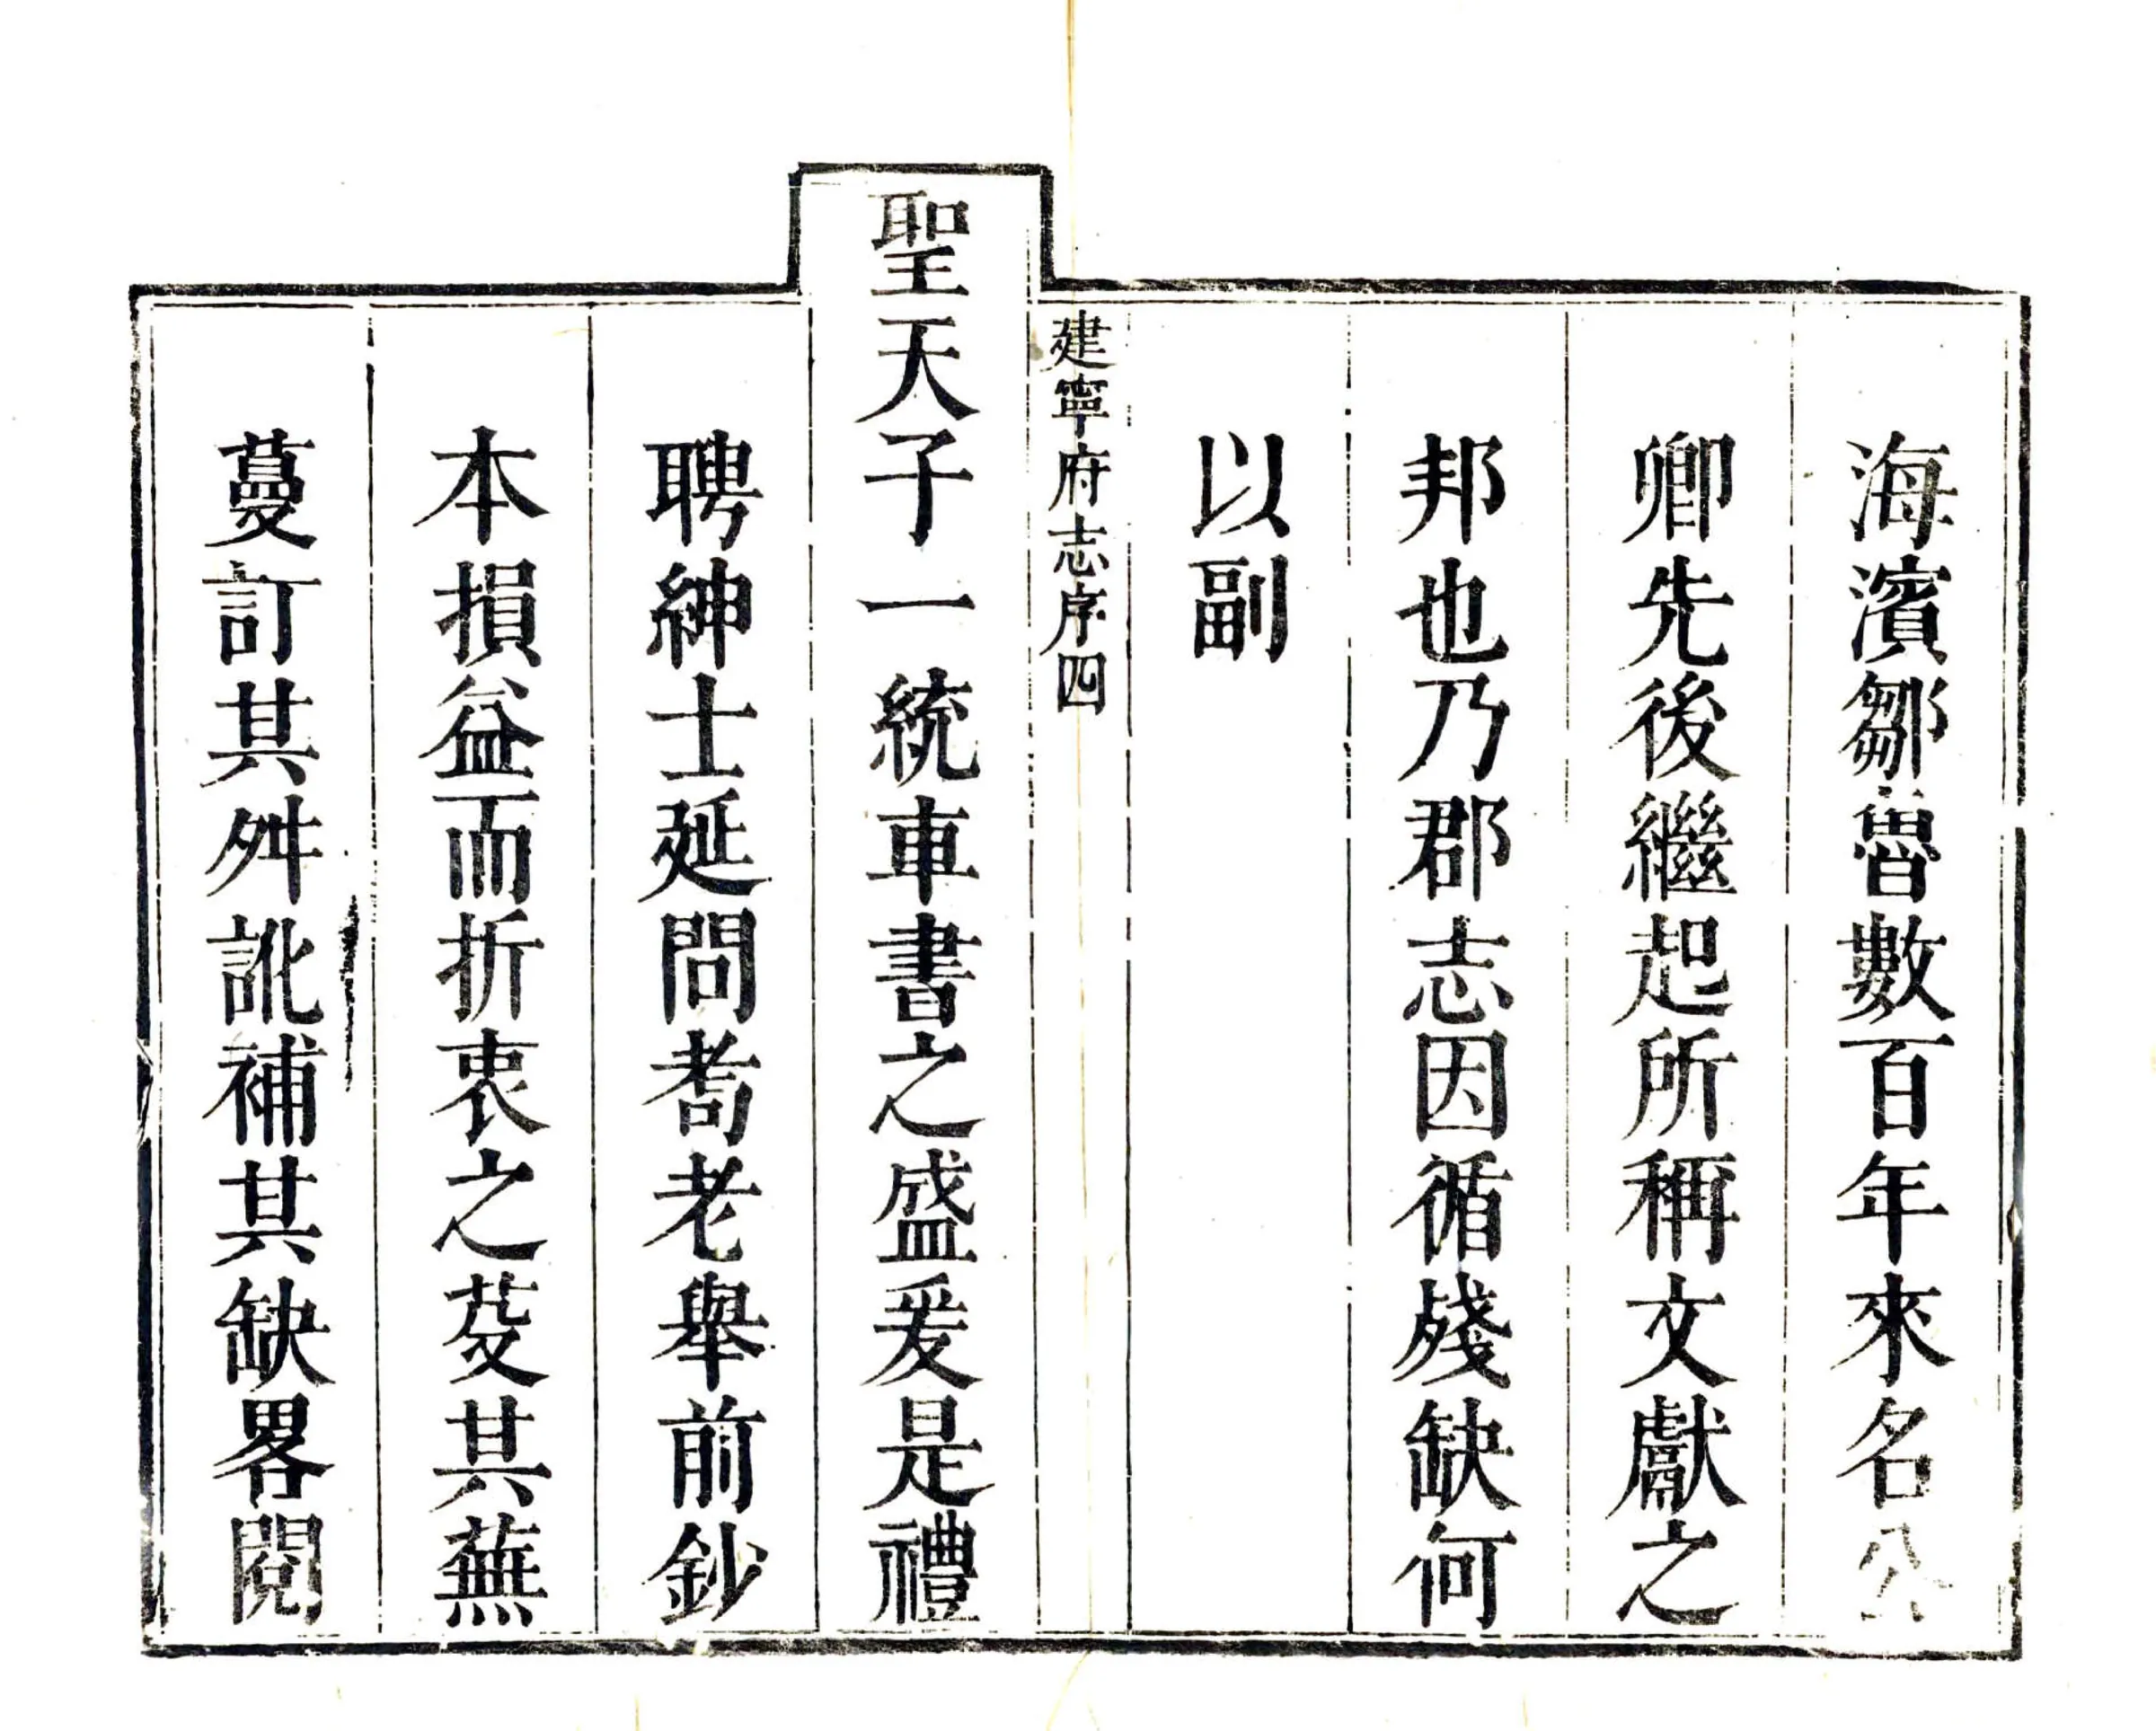 海濱鄒魯數百年來名公
卿先後繼起所稱文獻之
邦也乃郡志因循殘缺何
以副
建寧府志序四
聖天子一統車書之盛爰是禮
聘紳士延問耆老舉前鈔
本損益而折衷之芟其蕪
蔓訂其舛訛補其缺畧閱